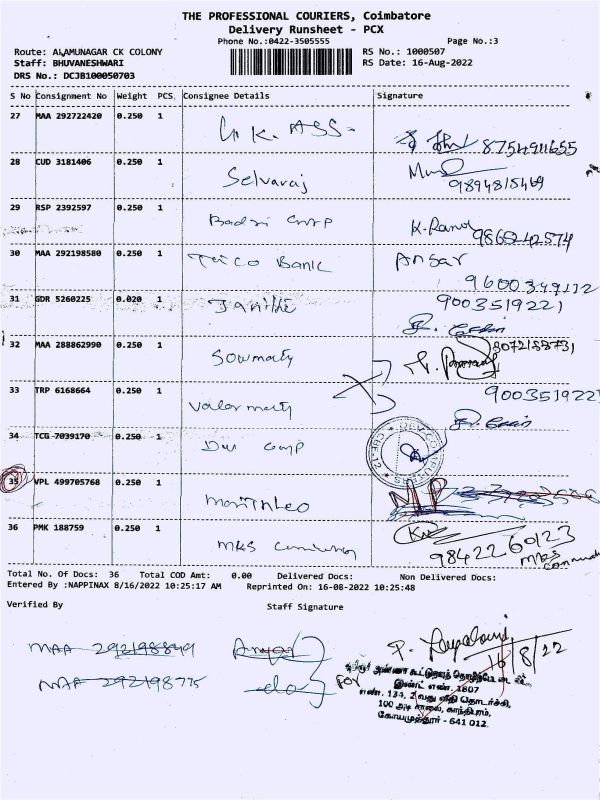 THE PROFESSIONAL COURIERS, Coimbatore
Delivery Runsheet - PCX
Phone No.:0422-3505555 Page No.:3
Route: ALAMUNAGAR CK COLONY RS No.: 1000507
Staff: BHUVANESHWARI RS Date: 16-Aug-2022
DRS No.: DCJB100050703
S No Consignment No Weight PCS. Consignee Details Signature
27 MAA 292722420 0.250 1 K. ASS 8754911655
28 CUD 3181406 0.250 1 Selvaraj 9894815469
29 RSP 2392597 0.250 1 Badri Corp K. Ramo 9865242574
30 MAA 292198580 0.250 1 Taico Bank Ansar 9600349132
31 GDR 5260225 0.020 1 9003519221
32 MAA 288862990 0.250 1 Sowmaty 8072188731
33 TRP 6168664 0.250 1 Valarmaty 9003519221
34 TCG 7039170 0.250 1
35 VPL 499705768 0.250 1 NP
36 PMK 188759 0.250 1 MKS 9842260123
MKS
Total No. Of Docs: 36 Total COD Amt: 0.00 Delivered Docs: Non Delivered Docs:
Entered By :NAPPINAX 8/16/2022 10:25:17 AM Reprinted On: 16-08-2022 10:25:48
Verified By Staff Signature
MAA 292198849
MAA 292198775 -do-
16/8/22
FOR
இண்ட் எண். 1807
எண். 134, 2வது வீதி தொடர்ச்சி,
100 அடி சாலை, காந்திபுரம்,
கோயமுத்தூர் - 641 012.